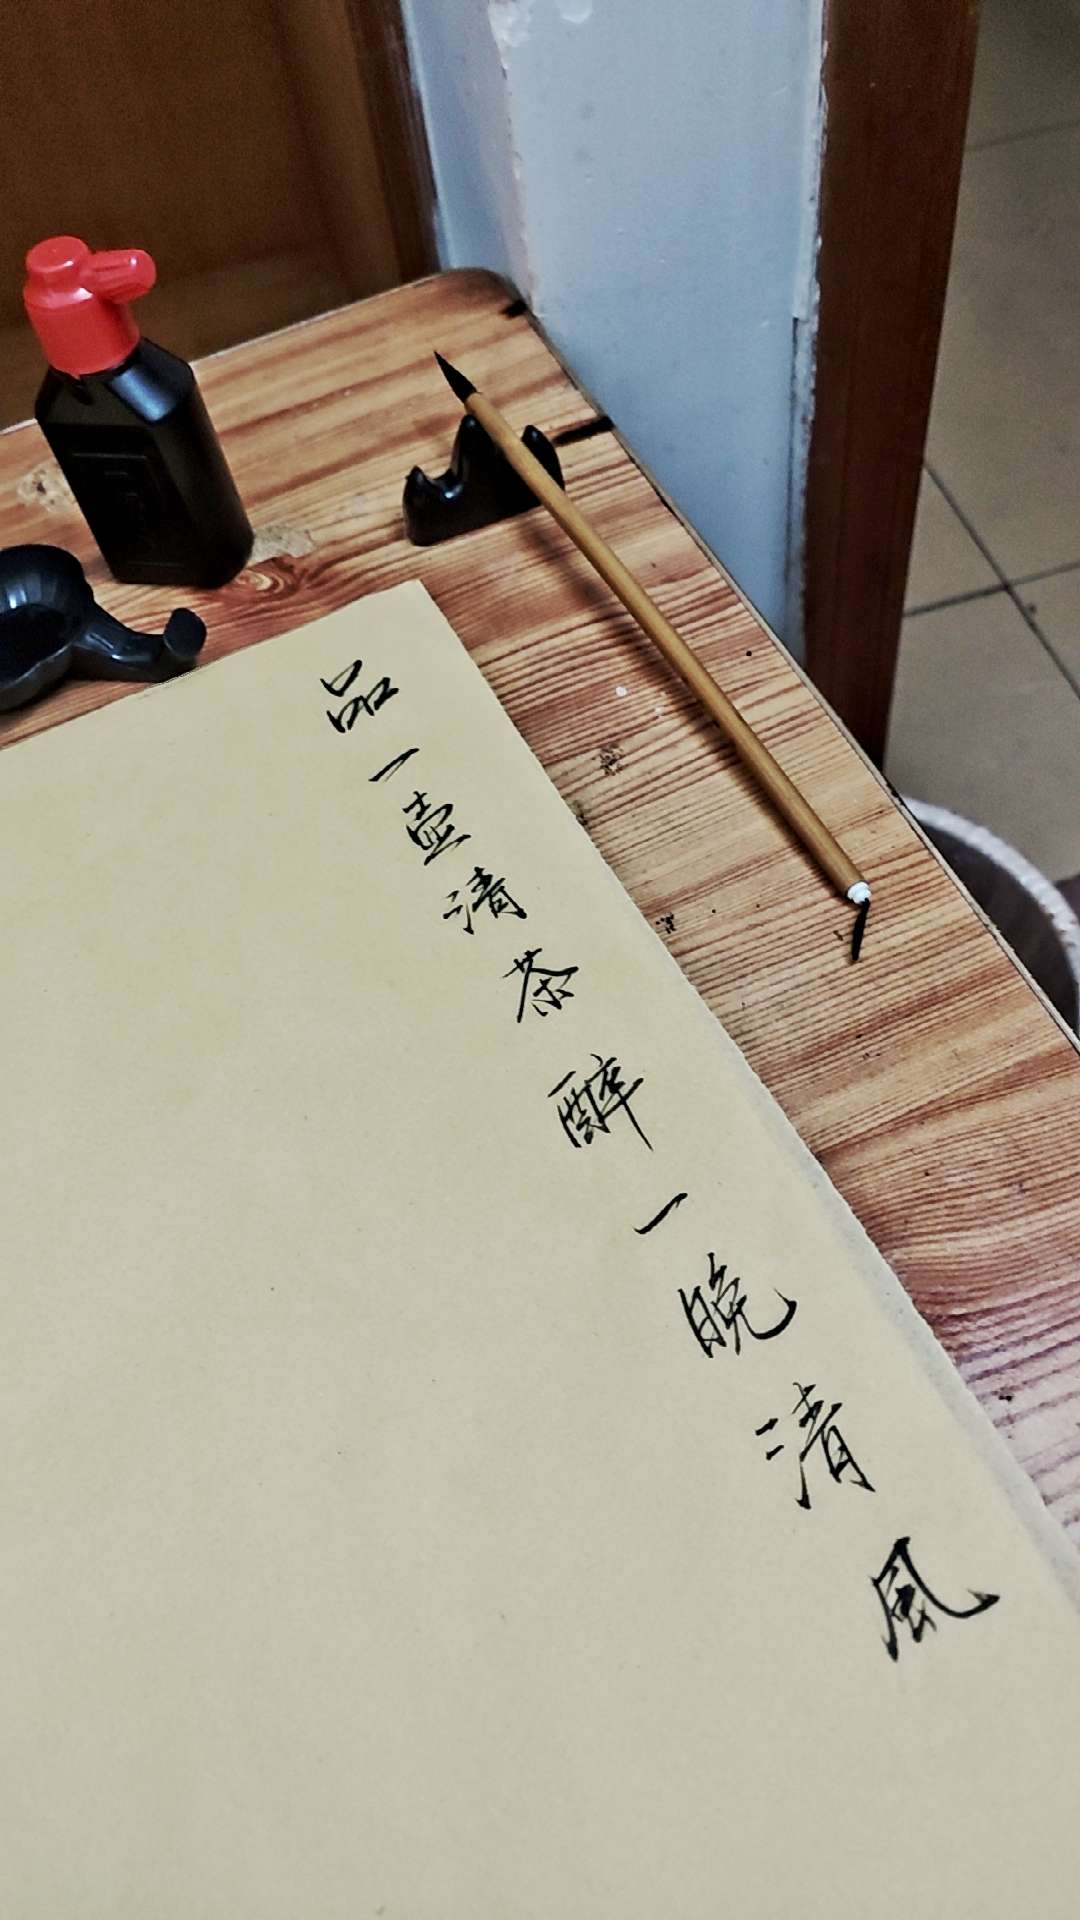 品一壶清茶醉一晚清風